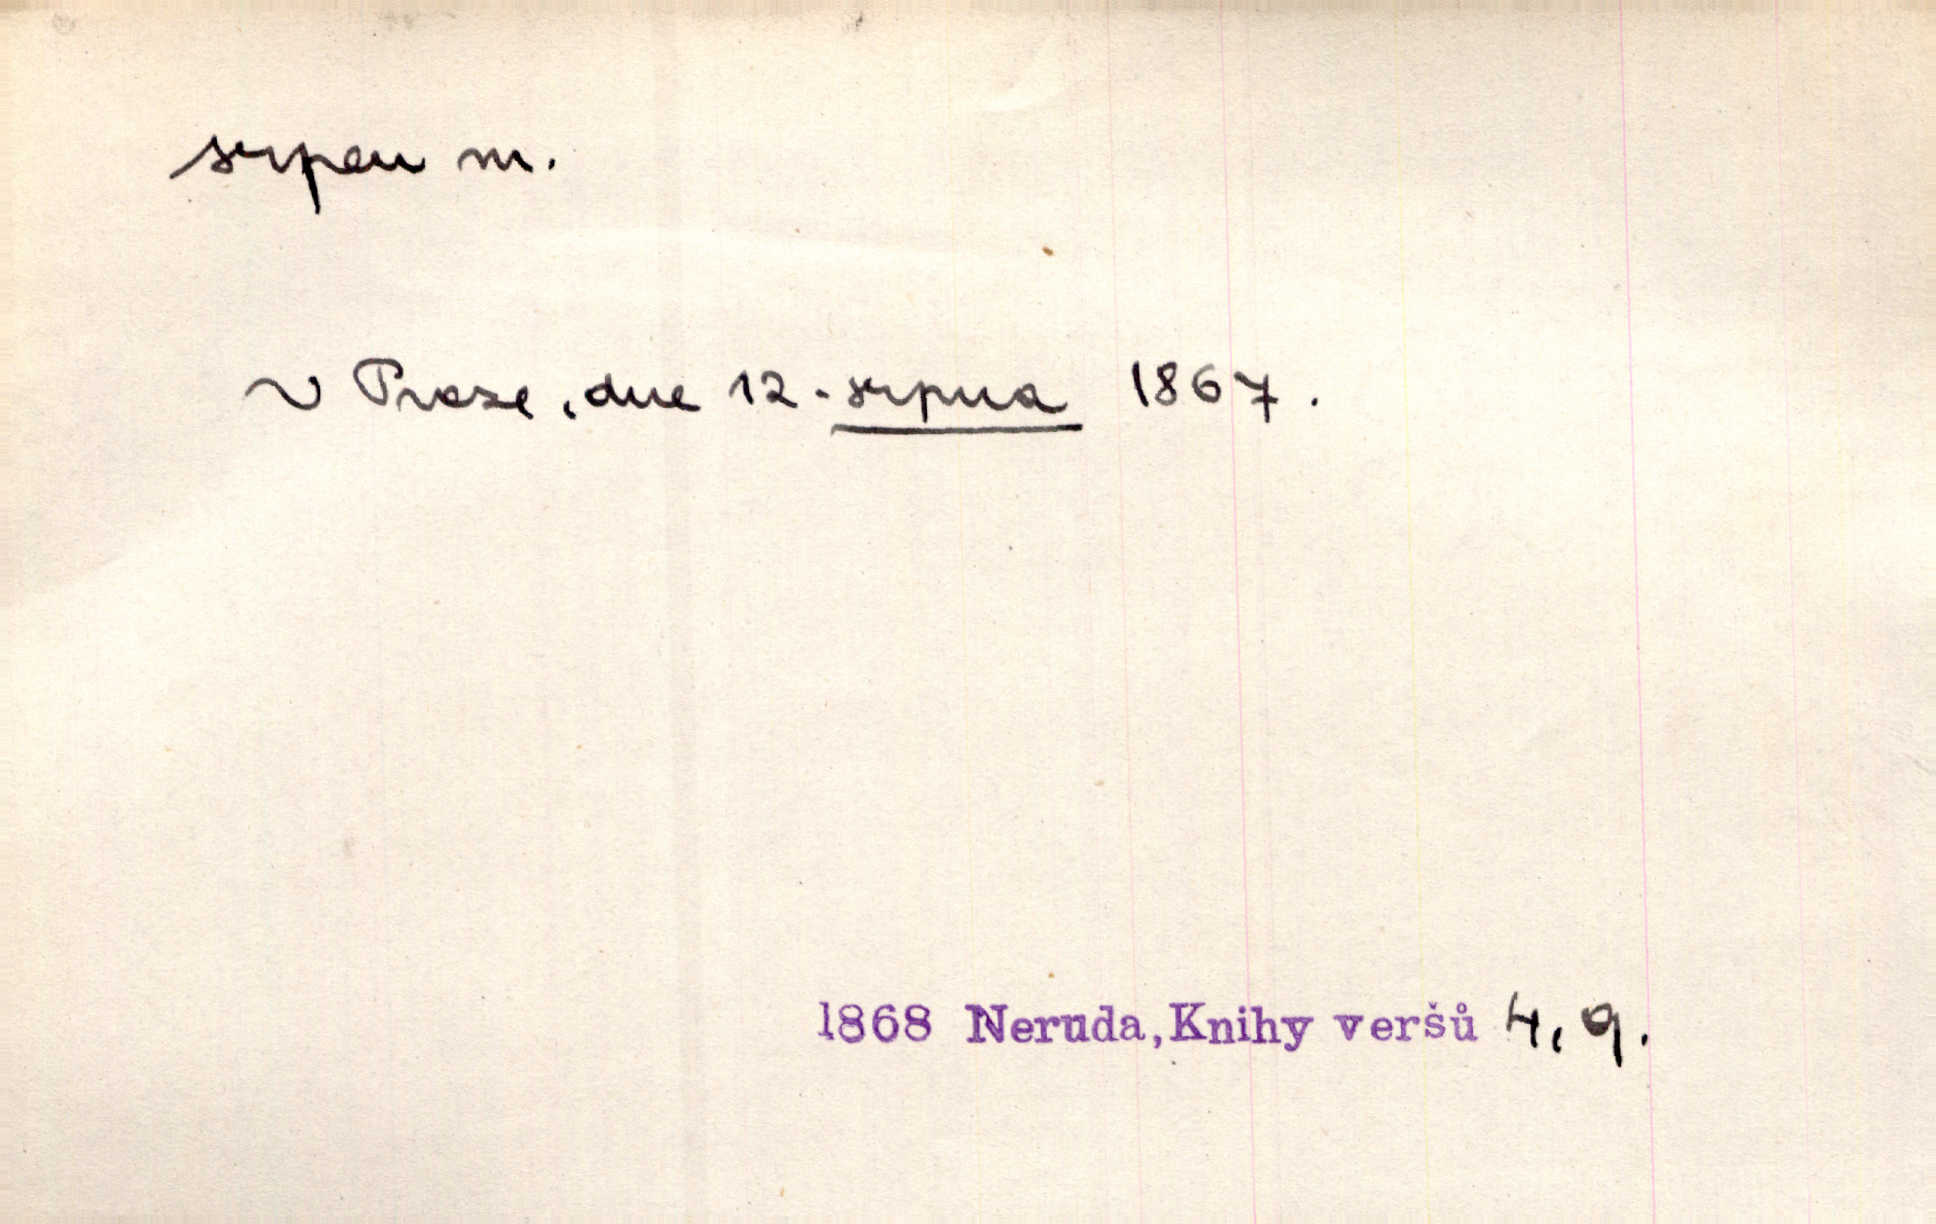 srpen m.
V Praze, dne 12. srpna 1867.
1868 Neruda, Knihy veršů 4, 9.